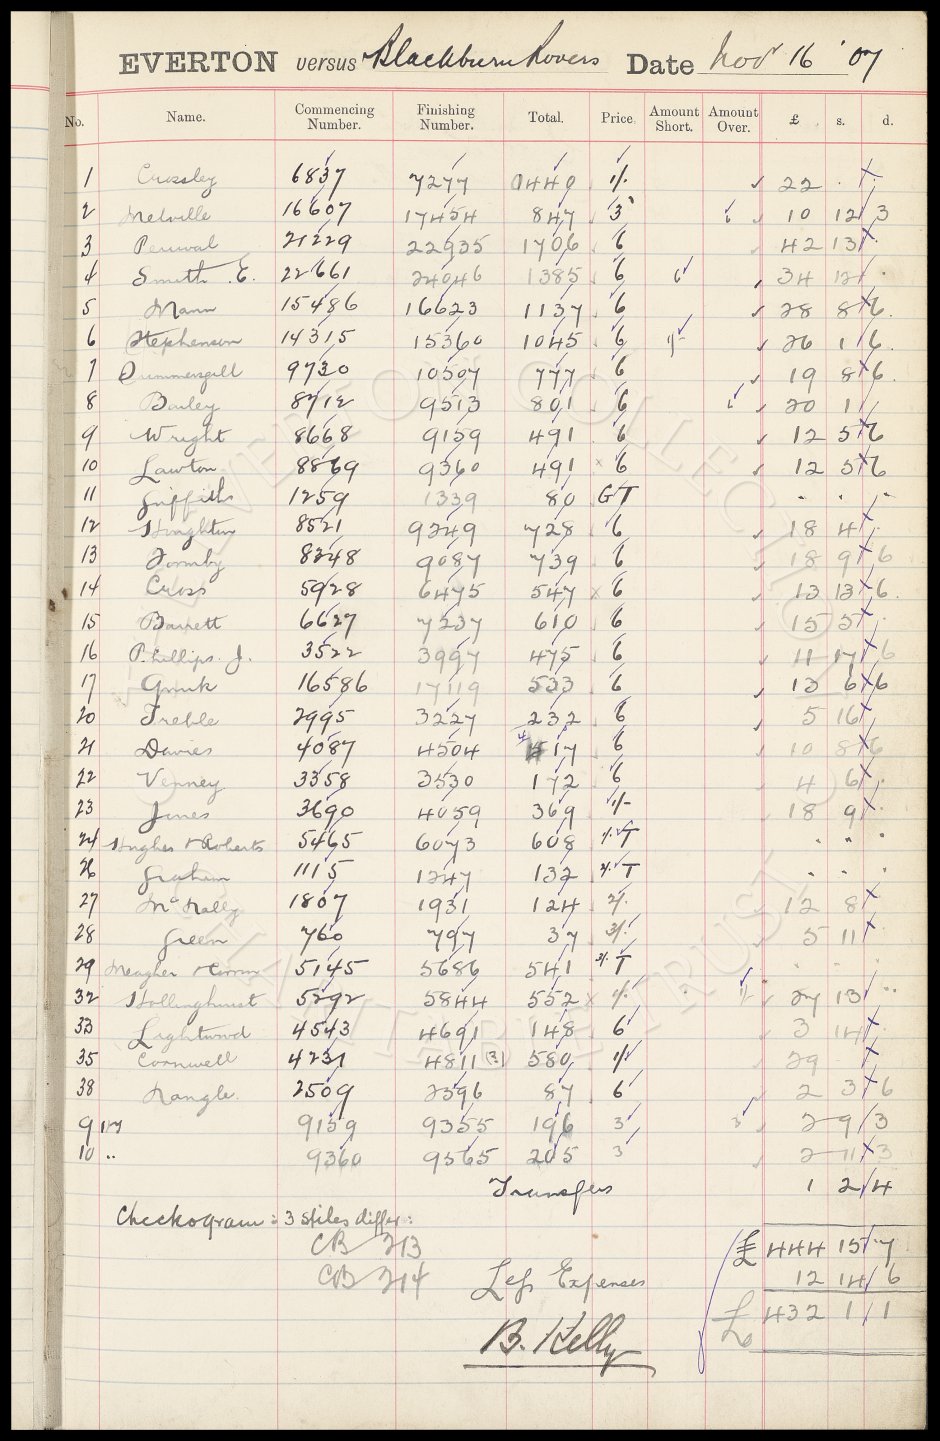 EVERTON versus Blackburn Rovers Date Nov 16 '07
No. Name. Commencing Number. Finishing Number. Total. Price Amount Short. Amount Over. £ s. d.
1 Crossley 6837 7277 0440 1/- 22 . .
2 Melville 16607 17454 847 3 6 10 12 3
3 Percival 21229 22935 1706 6 42 13 .
4 Smith .E. 22661 24046 1385 6 6 34 12 .
5 Mann 15486 16623 1137 6 28 8 6.
6 Stephenson 14315 15360 1045 6 1/- 26 1 6.
7 9730 10507 777 6 19 8 6.
8 Bailey 8712 9513 801 6 6 20 1
9 Wright 8668 9159 491 6 12 5 6
10 Lawton 8869 9360 491 6 12 5 6
11 Griffiths 1259 1339 80 GT . . .
12 Houghton 8521 9249 728 6 18 4 .
13 Formby 8348 9087 739 6 18 9 6
14 Cross 5928 6475 547 6 13 13 6.
15 Barrett 6627 7237 610 6 15 5 .
16 Phillips. J. 3522 3997 475 6 11 17 6
17 Quirk 16586 17119 533 6 13 6 6
20 Treble 2995 3227 232 6 5 16 .
21 Davies 4087 4504 417 6 10 8 6
22 Venney 3358 3530 172 6 4 6 .
23 Jones 3690 4059 369 1/- 18 9 .
24 Hughes & Roberts 5465 6073 608 1/- T . . .
26 Graham 1115 1247 132 2/- T . . .
27 McNally 1807 1931 124 2/- 12 8 .
28 Green 760 797 37 3/- 5 11 .
29 Meagher & 5145 5686 541 3/- T . . .
32 Hollinghurst 5292 5844 552 1/- 1/- 27 13 ..
33 Lightwood 4543 4691 148 6 3 14 .
35 Cornwell 4231 4811 [?] 580 1/- 29 .
38 Nangle. 2509 2596 87 6 2 3 6
9 9159 9355 196 3 3 2 9 3
10 " 9360 9565 205 3 2 11 3
Transfers 1 2 4
Checkogram: 3 stiles differ:
£ 444 15 7
CB 213
CB 214 Less Expenses 12 14 6
£ 432 1 1
B. Kelly
EVERTON COLLECTION
CHARITABLE TRUST